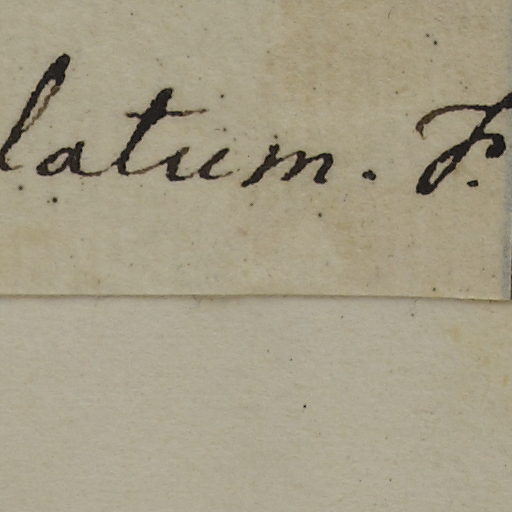 latum. F.